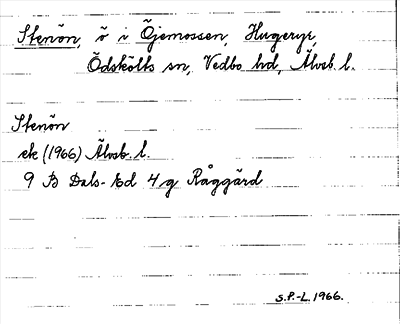 Stenön, ö i Öjemossen, Hugeryr,
Ödskölts sn, Vedbo hd, Älvsb. l.
Stenön
ek (1966) Älvsb. l.
9 B Dals-Ed 4g Råggärd
S.P.-L. 1966.